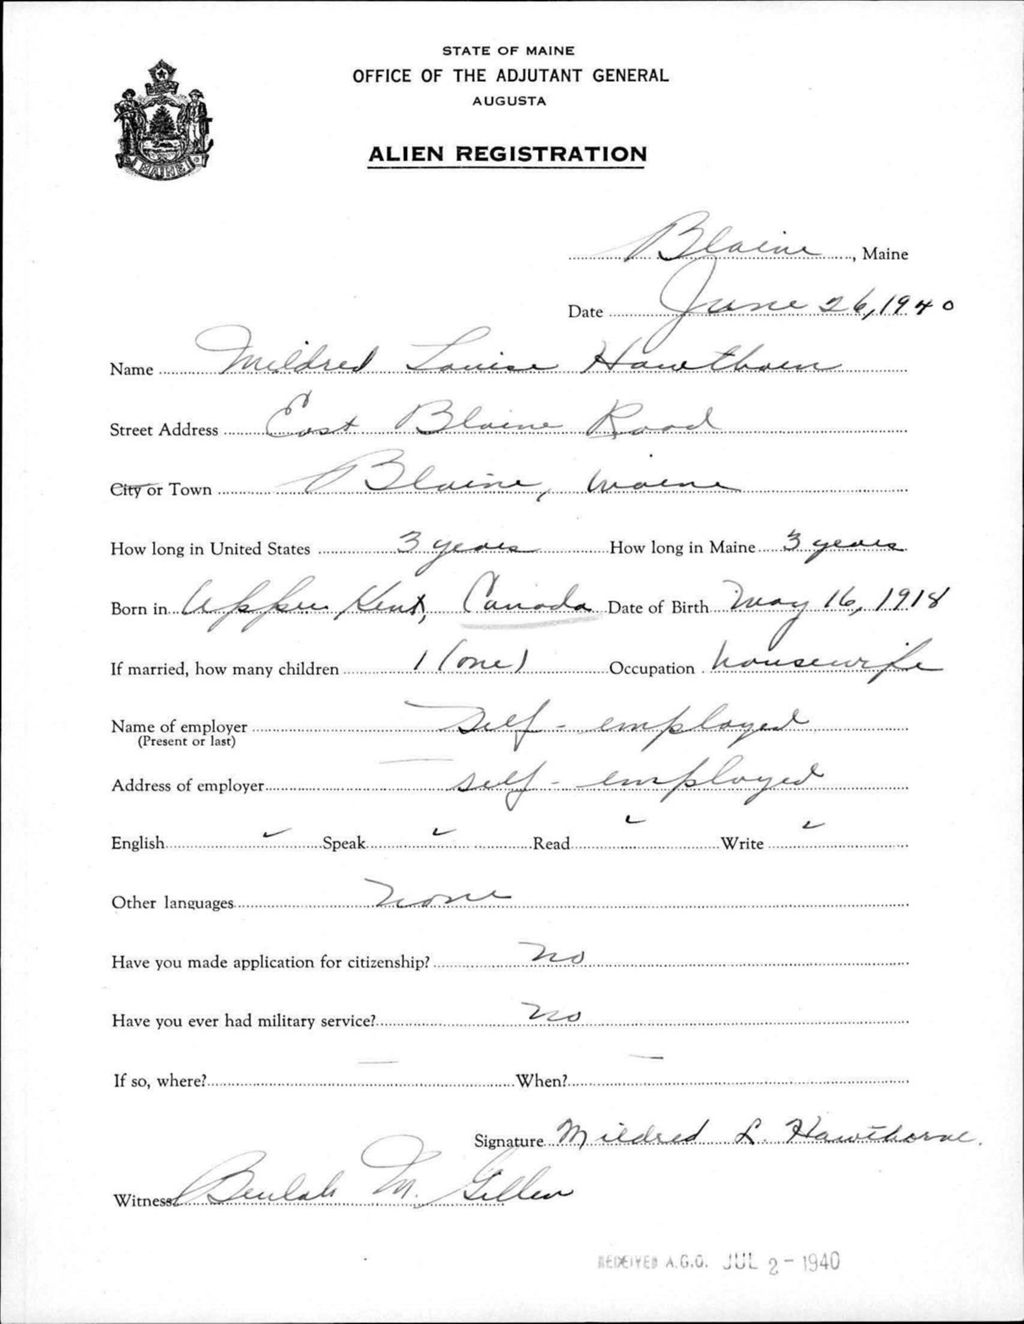 STATE OF MAINE
OFFICE OF THE ADJUTANT GENERAL
AUGUSTA
ALIEN REGISTRATION
Blaine, Maine
Date June 26, 1940
Name Mildred Louise Hawthorn
Street Address East Blaine Road
City or Town Blaine, Maine
How long in United States 3 years How long in Maine 3 years
Born in Upper Kent, Canada Date of Birth May 16, 1918
If married, how many children 1 (one) Occupation housewife
Name of employer Self-employed
(Present or last)
Address of employer self-employed
English ✓ Speak ✓ Read ✓ Write ✓
Other languages none
Have you made application for citizenship? no
Have you ever had military service? no
If so, where? — When? —
Signature Mildred L. Hawthorne.
Witness Beulah M. Gillen
RECEIVED A.G.O. JUL 2 - 1940